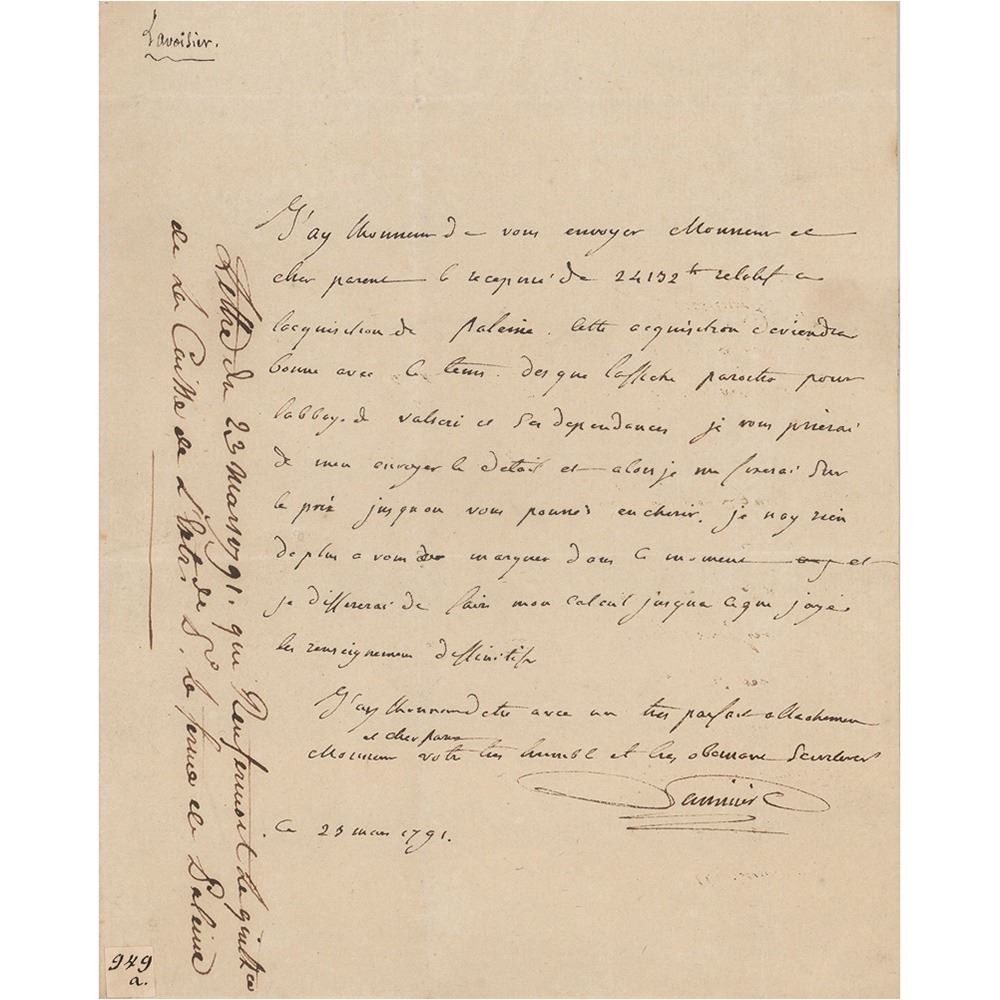 Lavoisier.
J'ay lhonneur de vous envoyer Monsieur et
cher parent le recepissé de 24132 tt relatif a
lacquisition de paleine. cette acquisition deviendra
bonne avec le tems. des que laffiche paroitra pour
labbaye de valseri et ses dependances je vous prierai
de men envoyer le detail et alors je me fixerai sur
le prix jusquou vous pourrés encherir. je nay rien
de plus a vous marquer dans ce moment et
je differerai de faire mon calcul jusqua ce que jaye
les renseignemens deffinitifs
J'ay lhonneur detre avec un tres parfait attachement
et cher parent
Monsieur votre tres humble et tres obeissant Serviteur
Ce 23 mars 1791.
Lettre du 23 mars 1791. qui Renfermoit la quittce
de La Caisse de L'Extre. de Sr. la ferme de Paleine
949
a.